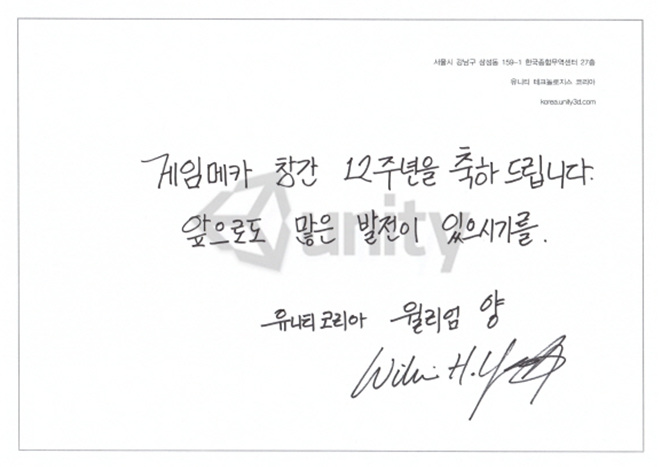 서울시 강남구 삼성동 159-1 한국종합무역센터 27층
유니티 테크놀로지스 코리아
korea.unity3d.com
게임메카 창간 12주년을 축하 드립니다.
앞으로도 많은 발전이 있으시기를.
unity
유니티코리아 윌리엄 양